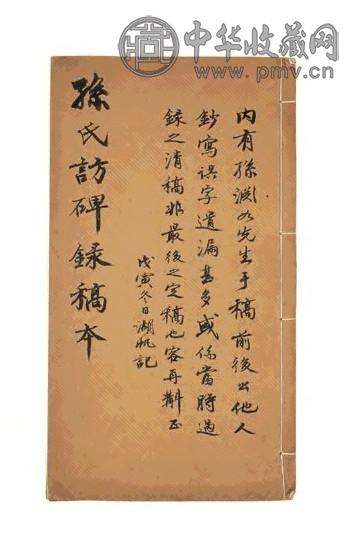 中华收藏网
www.pmv.cn
内有孫渊如先生手稿前後出他人
鈔寫误字遺漏甚多或係當時過
録之清稿非最後之定稿也容再斠正
戊寅冬日湖帆記
孫氏訪碑録稿本